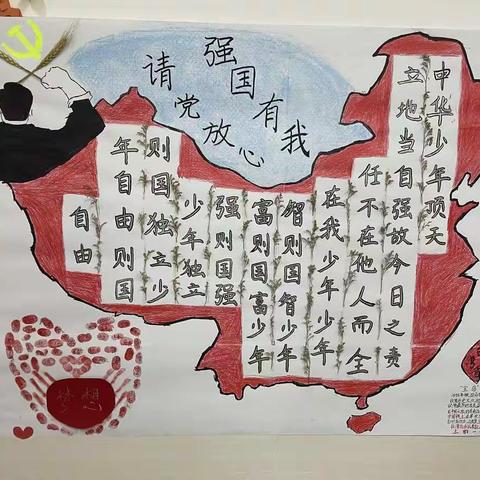 请党放心
强国有我
中华少年顶天
立地当自强故今日之责
任不在他人而全
在我少年少年
智则国智少年
富则国富少年
强则国强
少年独立
则国独立少
年自由则国
自由
梦想